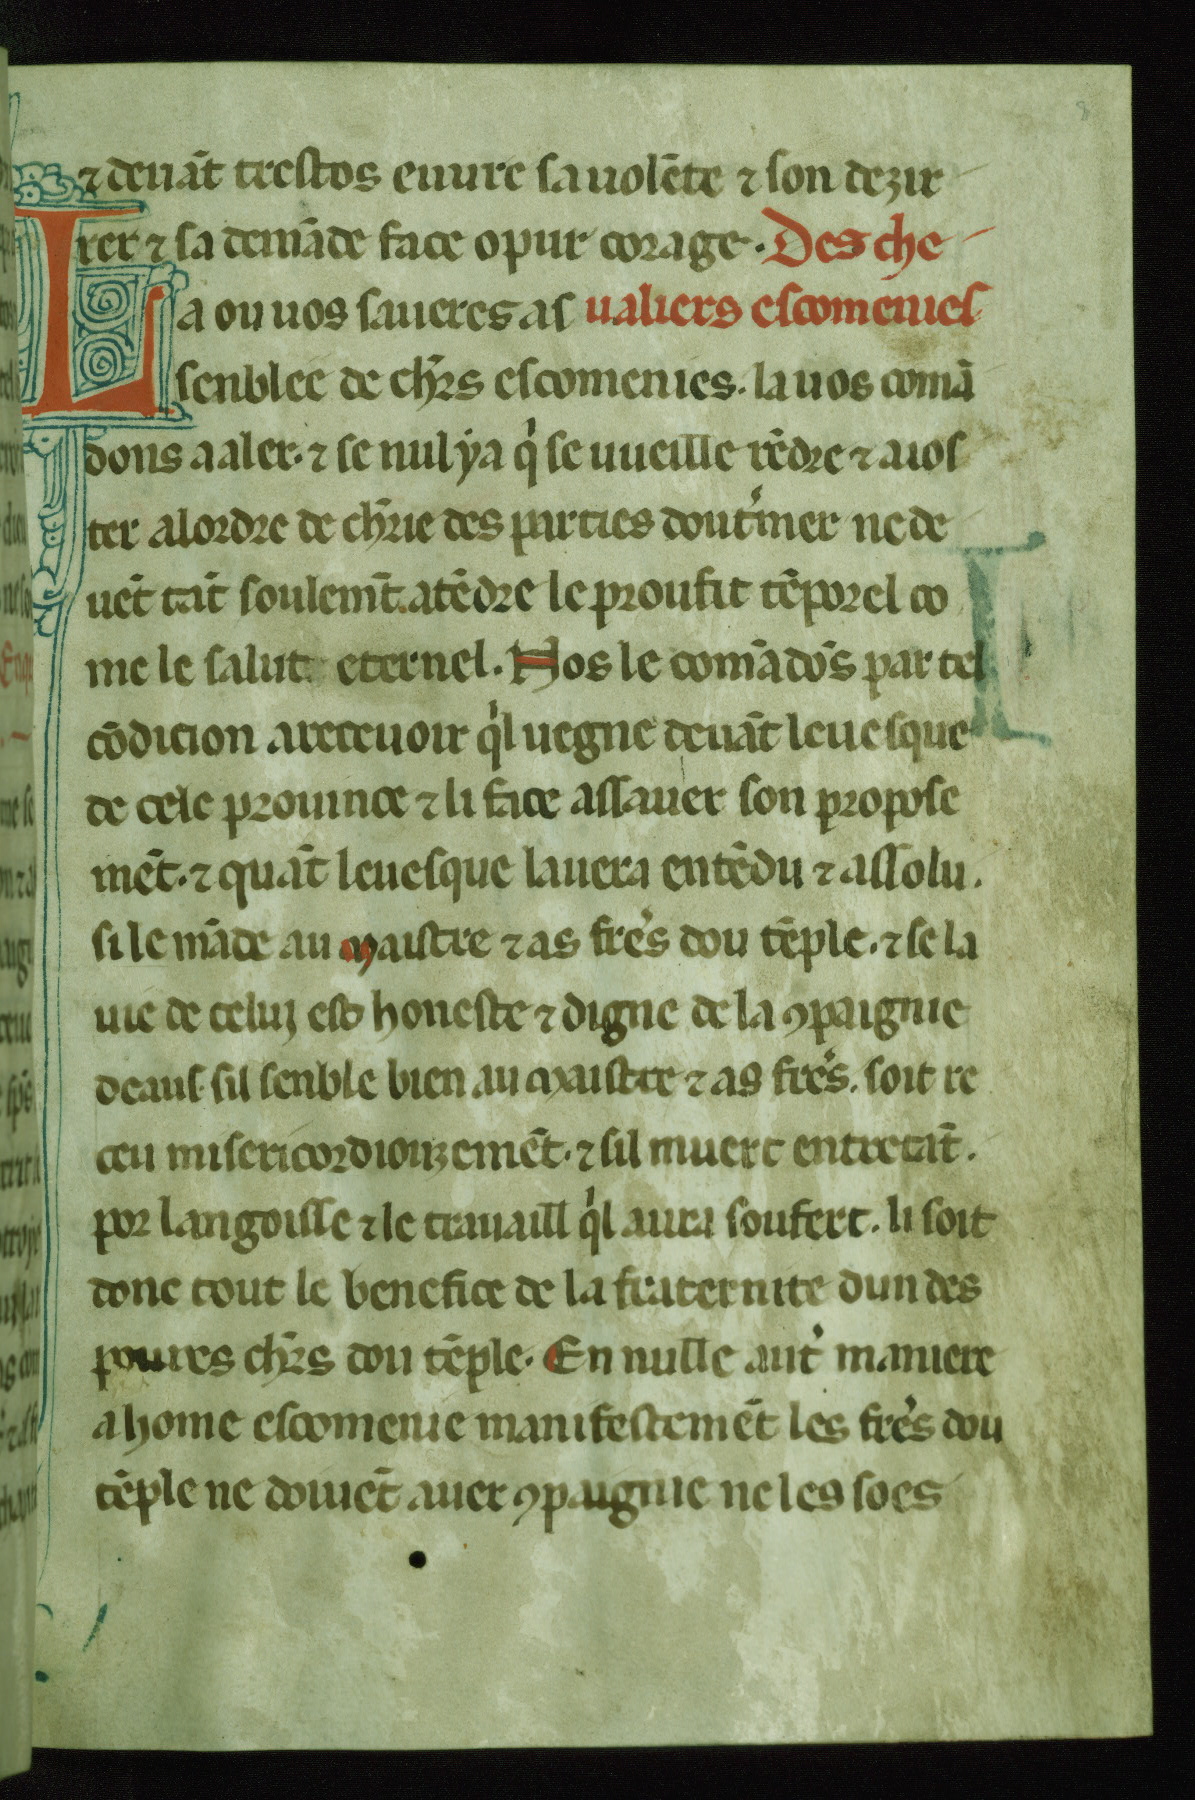 ⁊ deuāt trestos euure sa uolēte ⁊ son dezir
rer ⁊ sa demāde face o pur corage. Des che
La ou uos saueres as ualiers escomenies
senblee de ch̄rs escomenies. la uos comā
dons a aler. ⁊ se nul ẏa q̍ se uueille rēdre ⁊ aios
ter alordre de ch̄rie des parties dout̍mer ne de
uēt tāt soulemt̄. atēdre le proufit tēporel co
me le salut eternel. Nos le comādōs par tel
cōdicion a receuoir q̍l uegne deuāt leuesque
de cele prouince ⁊ li face assauer son propose
mēt. ⁊ quāt leuesque lauera entēdu ⁊ assolu.
si le māde au maistre ⁊ as fre̍s dou tēple. ⁊ se la
uie de celuj est honeste ⁊ digne de la ꝯpaignie
deaus. sil senble bien au maistre ⁊ as fre̍s. soit re
ceu misericordiouzemēt. ⁊ sil muert entretāt.
por langoisse ⁊ le trauaill q̍l aura soufert. li soit
done tout le benefice de la fraternite dun des
poures ch̄rs dou tēple. En nulle aut̍ maniere
a home escomenie manifestemēt les fre̍s dou
tēple ne doiuēt auer ꝯpaignie ne les soes